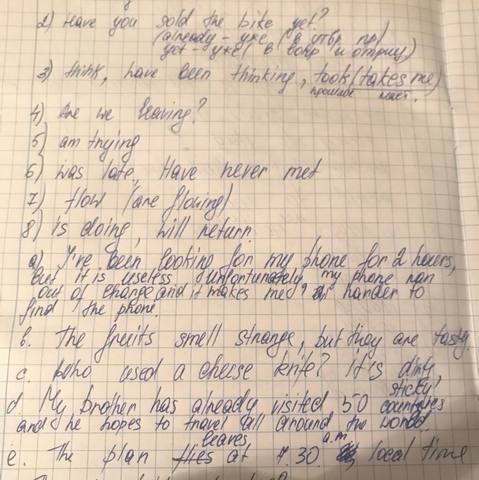 2) Have you sold the bike yet?
(already - уже (в утв. пр)
yet - уже (в вопр и отриц)
3) think, have been thinking, took (takes me)
прошлое наст.
4) Are we leaving?
5) am trying
6) was late, Have never met
7) flow (are flowing)
8) is doing, will return
a) I've been looking for my phone for 2 hours,
but it is useless. Unfortunately, my phone ran
out of charge and it makes me harder to
find the phone.
b. The fruits smell strange, but they are tasty.
c. Who used a cheese knife? It's dirty
sticky!
d My brother has already visited 50 countries
and he hopes to travel all around the world
leaves a.m
e. The plan flies at 7.30. local time